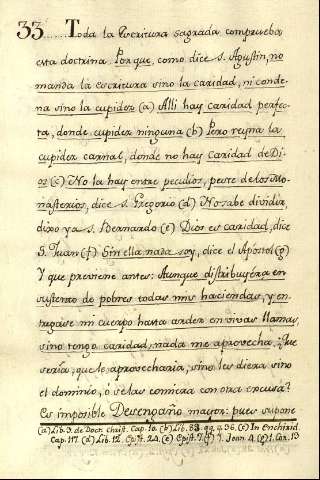 33......Toda la Escritura sagrada comprueba
esta doctrina. Porque, como dice S. Agustin, no
manda la escritura sino la caridad, ni conde-
na sino la cupidez (a) Alli hay caridad perfec-
ta, donde cupidez ninguna (b) Pero reyna la
cupidez carnal, donde no hay caridad de Di-
os (c) No la hay entre peculios, peste de los Mo-
nasterios, dice S. Gregorio (d) No sabe dividir,
dixo ya S. Bernardo (e) Dios es caridad, dice
S. Juan (f) Sin ella nada soy, dice el Apostol (g)
Y que previene antes: Aunque distribuyéra en
sustento de pobres todas mis haciendas, y en-
tregase mi cuerpo hasta arder en vivas llamas,
sino tengo caridad, nada me aprovecha. Que
sería, que le aprovecharia, sino les diera sino
el dominio, ó se las comiera con otra excusa?
Es imposible Desengaño mayor: pues supone
(a) Lib. 3. de Doct. Christ. Cap. 10. (b) Lib. 83. qq. q. 36. (c) In Enchirid.
Cap. 117. (d) Lib. 12. Epist. 24. (e) Epist. 7. (f) 1. Joan. 4. (g) 1. Cor. 13